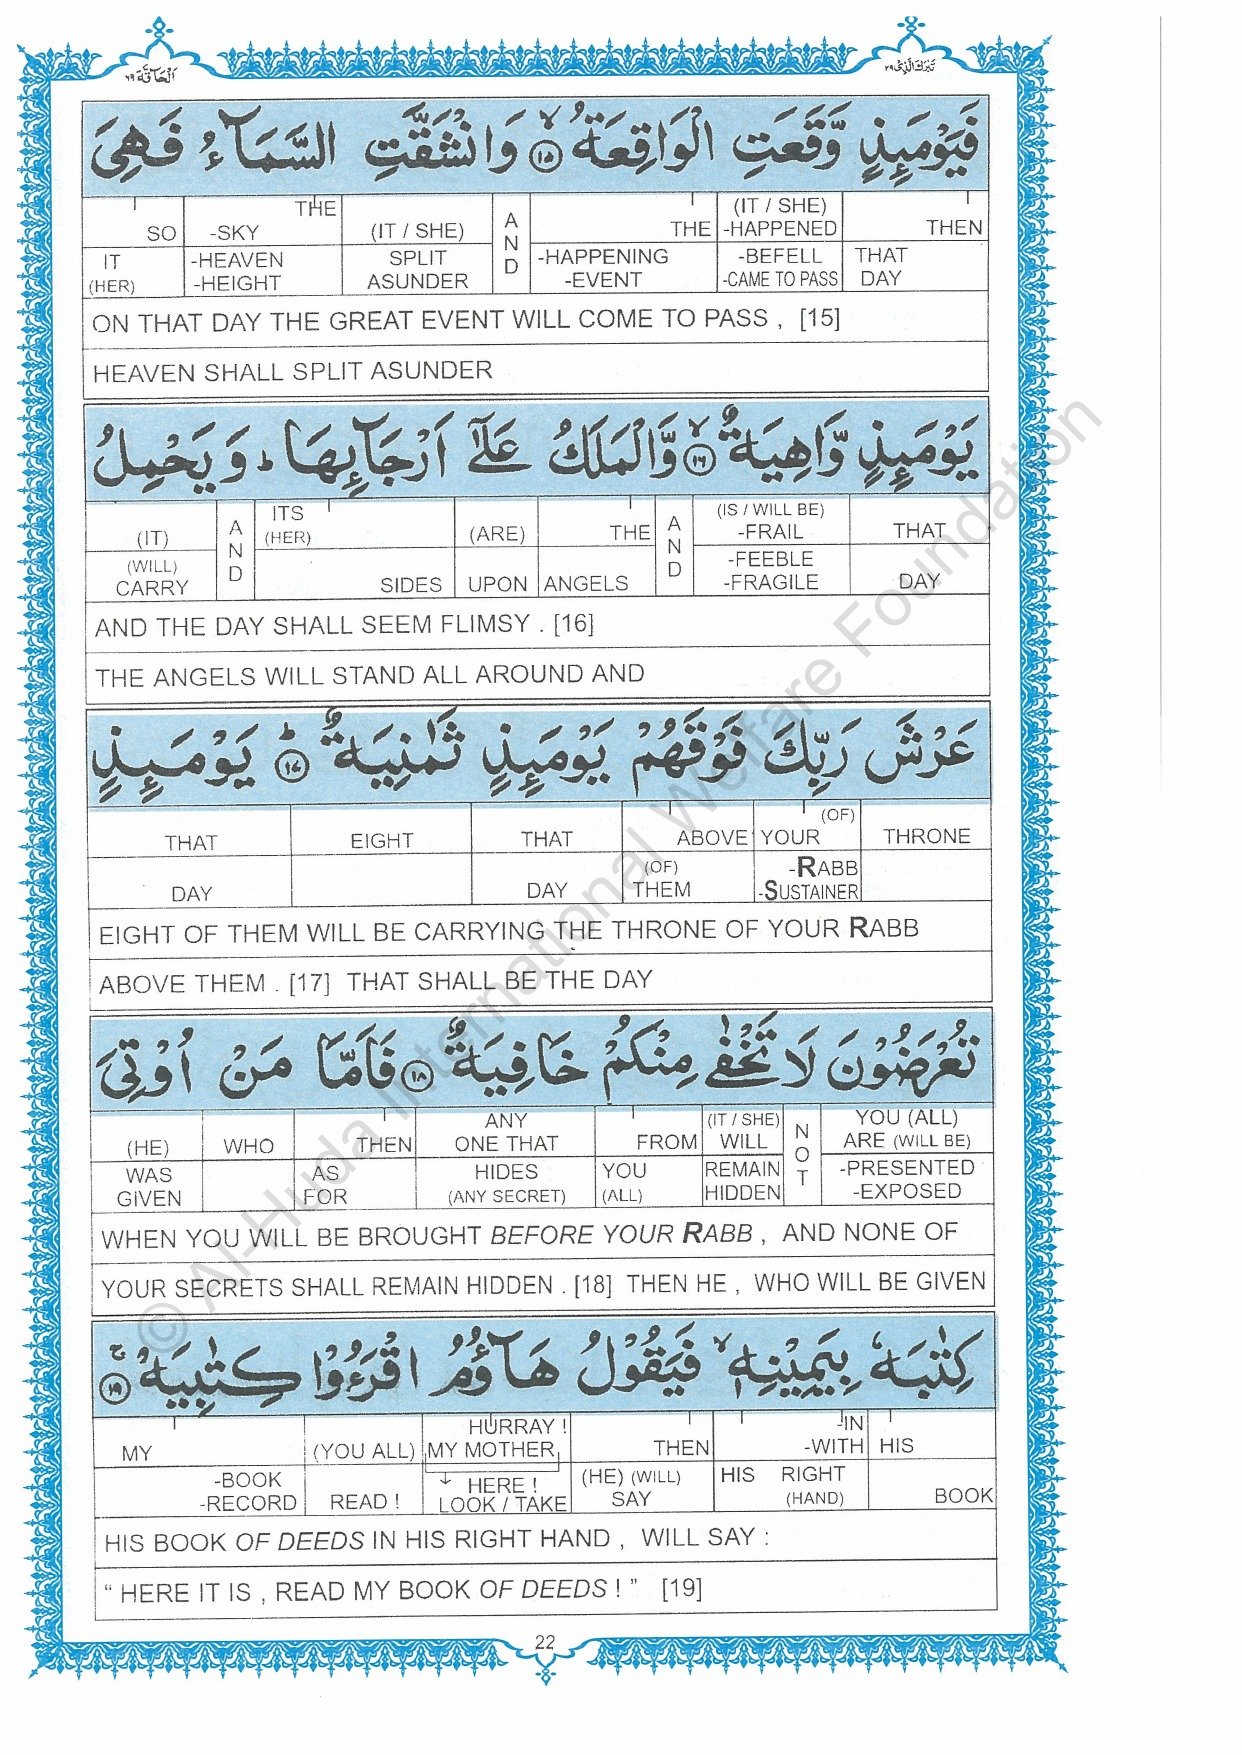 اَلْحَآقَّة ٦٩
تَبٰرَكَ الَّذِیْ ٢٩
فَیَوْمَىِٕذٍ وَّقَعَتِ الْوَاقِعَةُ ۙ ١٥ وَ انْشَقَّتِ السَّمَآءُ فَهِیَ
THEN THAT DAY | (IT / SHE) -HAPPENED -BEFELL -CAME TO PASS | THE -HAPPENING -EVENT | AND | (IT / SHE) SPLIT ASUNDER | THE -SKY -HEAVEN -HEIGHT | SO IT (HER)
ON THAT DAY THE GREAT EVENT WILL COME TO PASS , [15]
HEAVEN SHALL SPLIT ASUNDER
یَوْمَىِٕذٍ وَّاهِیَةٌ ۙ ١٦ وَّ الْمَلَكُ عَلٰۤی اَرْجَآىِٕهَا ؕ وَ یَحْمِلُ
THAT DAY | (IS / WILL BE) -FRAIL -FEEBLE -FRAGILE | AND | THE ANGELS | (ARE) UPON | ITS (HER) SIDES | AND | (IT) (WILL) CARRY
AND THE DAY SHALL SEEM FLIMSY . [16]
THE ANGELS WILL STAND ALL AROUND AND
عَرْشَ رَبِّكَ فَوْقَهُمْ یَوْمَىِٕذٍ ثَمٰنِیَةٌ ؕ ١٧ یَوْمَىِٕذٍ
THRONE | (OF) YOUR -RABB -SUSTAINER | ABOVE (OF) THEM | THAT DAY | EIGHT | THAT DAY
EIGHT OF THEM WILL BE CARRYING THE THRONE OF YOUR RABB
ABOVE THEM . [17] THAT SHALL BE THE DAY
تُعْرَضُوْنَ لَا تَخْفٰی مِنْكُمْ خَافِیَةٌ ١٨ فَاَمَّا مَنْ اُوْتِیَ
YOU (ALL) ARE (WILL BE) -PRESENTED -EXPOSED | NOT | (IT / SHE) WILL REMAIN HIDDEN | FROM YOU (ALL) | ANY ONE THAT HIDES (ANY SECRET) | THEN AS FOR | WHO | (HE) WAS GIVEN
WHEN YOU WILL BE BROUGHT BEFORE YOUR RABB , AND NONE OF
YOUR SECRETS SHALL REMAIN HIDDEN . [18] THEN HE , WHO WILL BE GIVEN
كِتٰبَهٗ بِیَمِیْنِهٖ ۙ فَیَقُوْلُ هَآؤُمُ اقْرَءُوْا كِتٰبِیَهْ ۚ ١٩
HIS BOOK | -IN -WITH HIS RIGHT (HAND) | THEN (HE) (WILL) SAY | HURRAY ! MY MOTHER HERE ! LOOK / TAKE | (YOU ALL) READ ! | MY -BOOK -RECORD
HIS BOOK OF DEEDS IN HIS RIGHT HAND , WILL SAY :
“ HERE IT IS , READ MY BOOK OF DEEDS ! ” [19]
22
© Al-Huda International Welfare Foundation